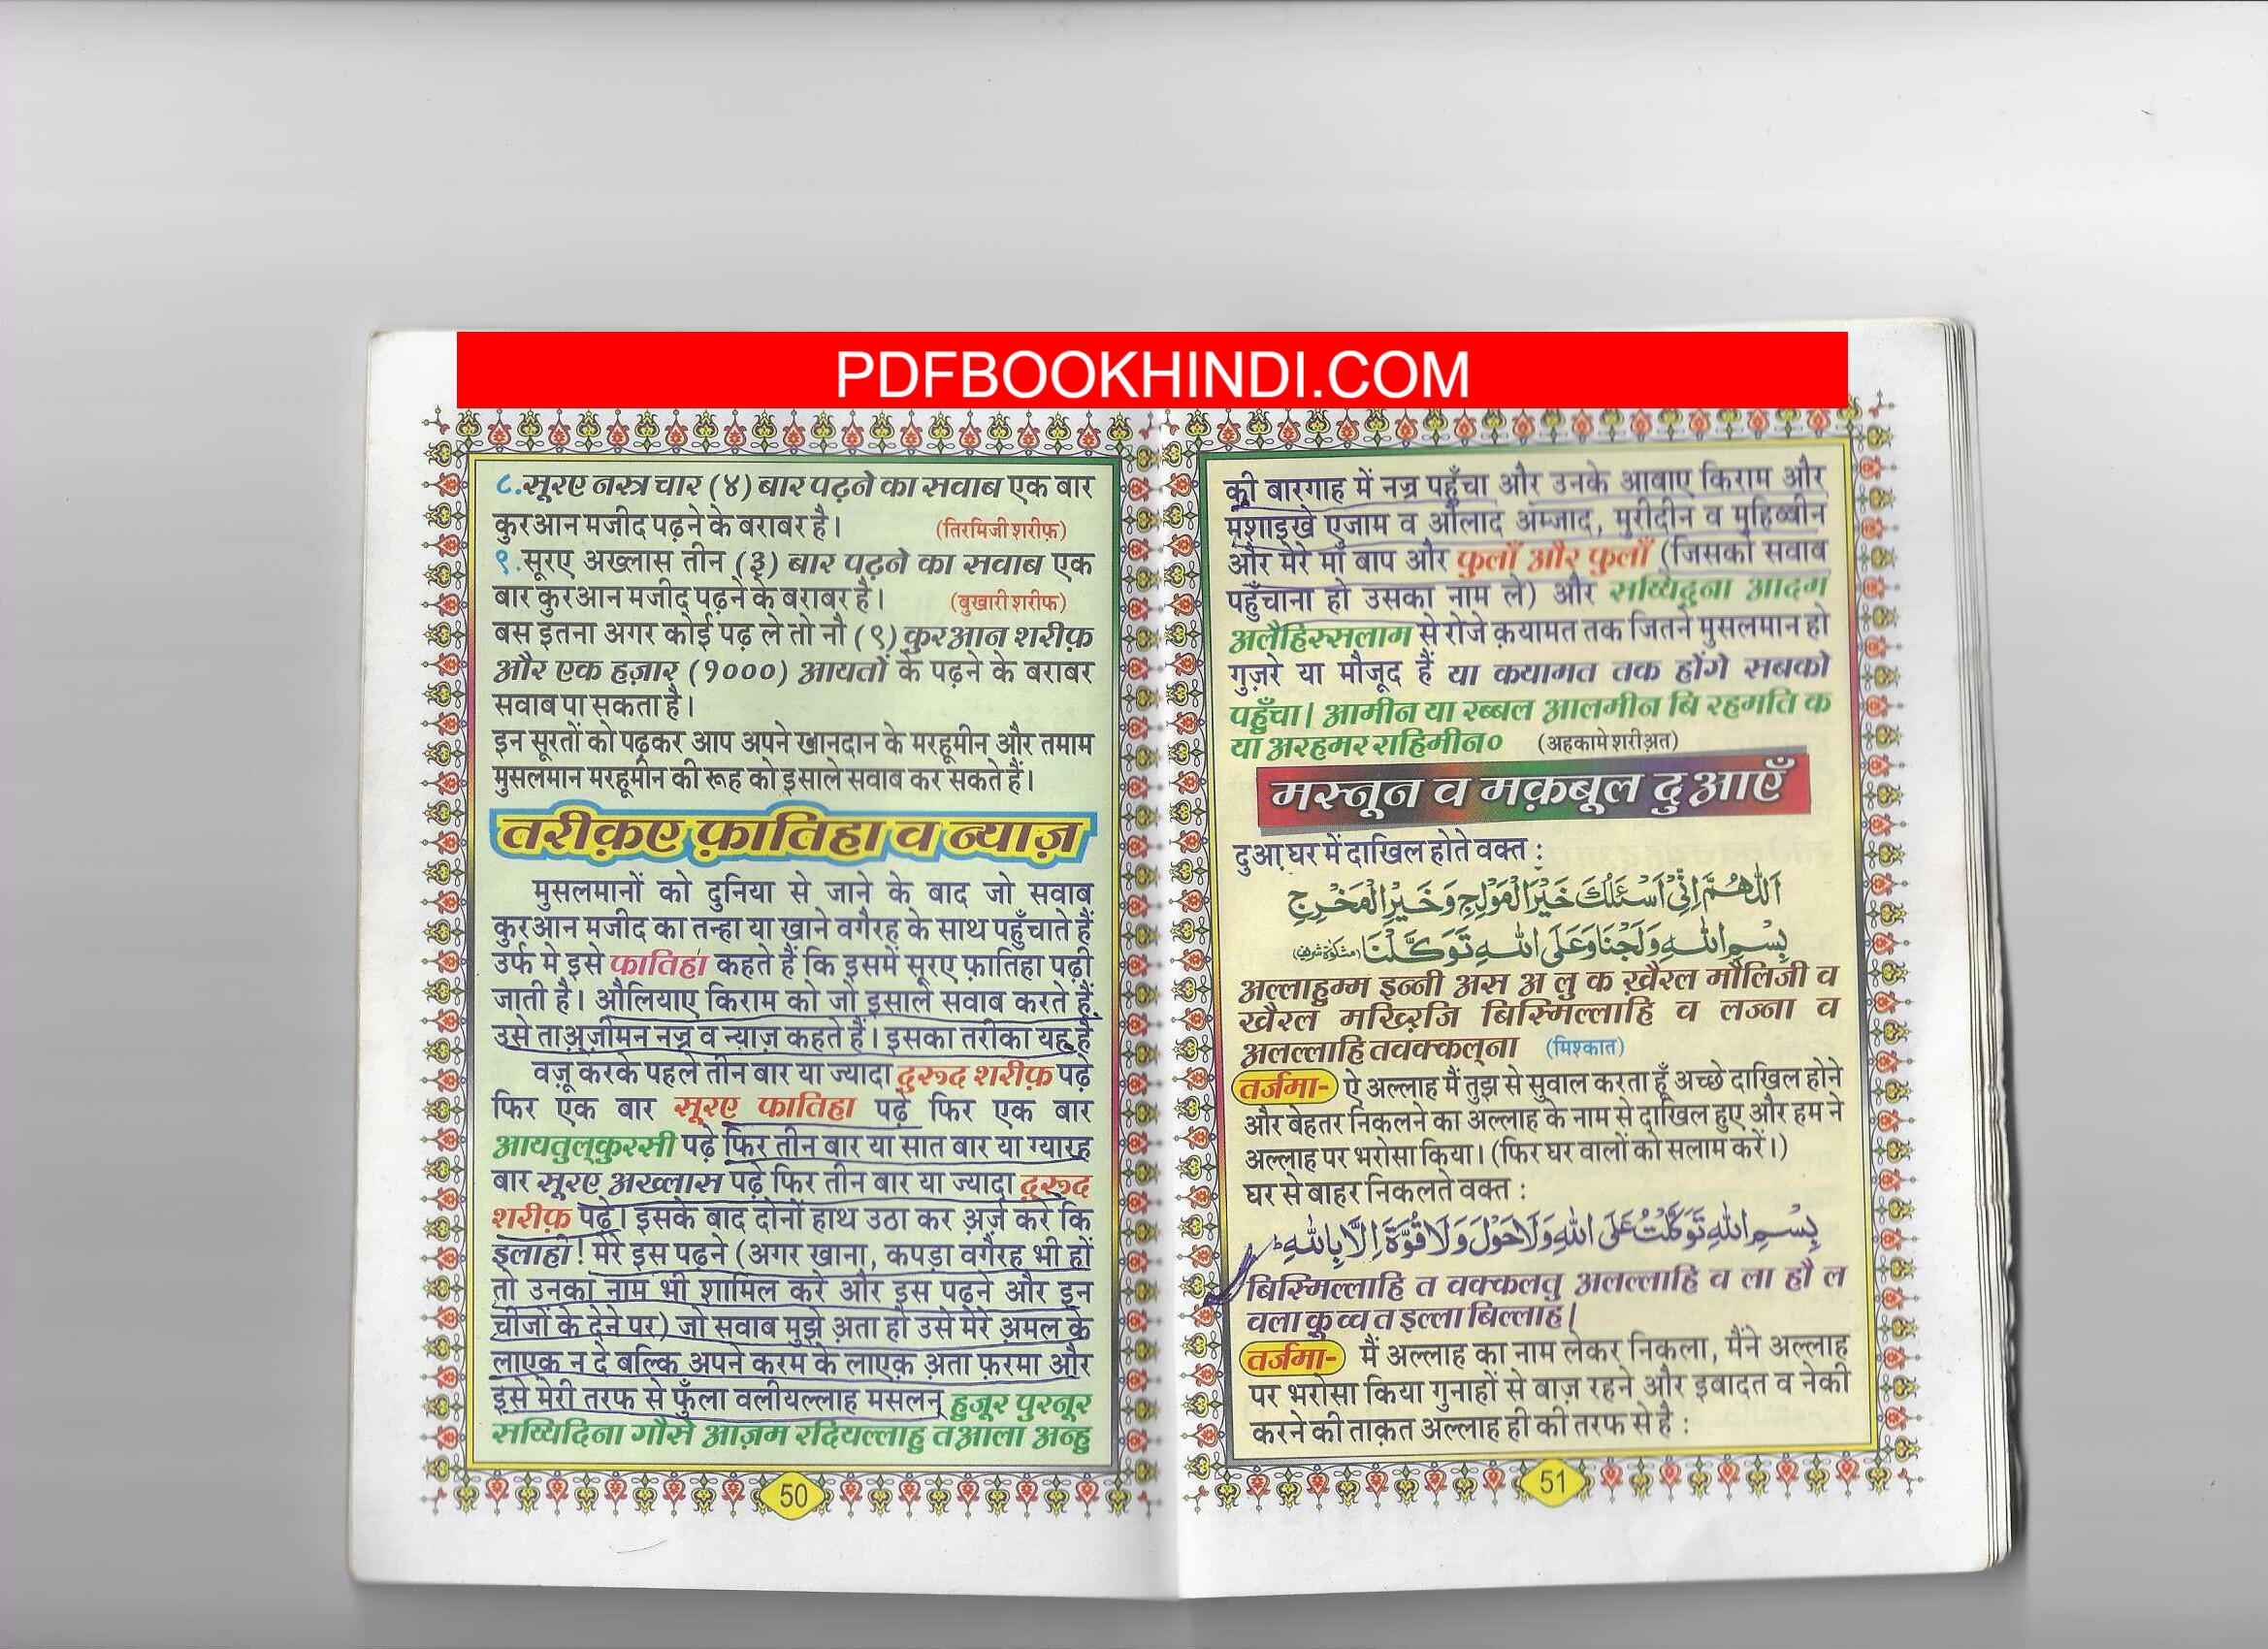 PDFBOOKHINDI.COM
८.सूरए नस्त्र चार (४) बार पढ़ने का सवाब एक बार
कुरआन मजीद पढ़ने के बराबर है। (तिरमिजी शरीफ़)
९.सूरए अख्लास तीन (३) बार पढ़ने का सवाब एक
बार कुरआन मजीद पढ़ने के बराबर है। (बुखारी शरीफ)
बस इतना अगर कोई पढ़ ले तो नौ (९) कुरआन शरीफ़
और एक हज़ार (१०००) आयतों के पढ़ने के बराबर
सवाब पा सकता है।
इन सूरतों को पढ़कर आप अपने खानदान के मरहूमीन और तमाम
मुसलमान मरहूमीन की रूह को इसाले सवाब कर सकते हैं।
तरीक़ए फ़ातिहा व न्याज़
मुसलमानों को दुनिया से जाने के बाद जो सवाब
कुरआन मजीद का तन्हा या खाने वगैरह के साथ पहुँचाते हैं
उर्फ मे इसे फातिहा कहते हैं कि इसमें सूरए फ़ातिहा पढ़ी
जाती है। औलियाए किराम को जो इसाले सवाब करते हैं
उसे ताअ़ज़ीमन नज्र व न्याज़ कहते हैं। इसका तरीका यह है
वज़ू करके पहले तीन बार या ज्यादा दुरूद शरीफ़ पढ़े
फिर एक बार सूरए फातिहा पढ़े फिर एक बार
आयतुल्कुरसी पढ़े फिर तीन बार या सात बार या ग्यारह
बार सूरए अख्लास पढ़े फिर तीन बार या ज्यादा दुरूद
शरीफ़ पढ़े। इसके बाद दोनों हाथ उठा कर अ़र्ज़ करे कि
इलाही! मेरे इस पढ़ने (अगर खाना, कपड़ा वगैरह भी हों
तो उनका नाम भी शामिल करे और इस पढ़ने और इन
चीजों के देने पर) जो सवाब मुझे अ़ता हो उसे मेरे अ़मल के
लाएक़ न दे बल्कि अपने करम के लाएक़ अ़ता फ़रमा और
इसे मेरी तरफ से फुँला वलीयल्लाह मसलन् हुजूर पुरनूर
सय्यिदिना गौसे आज़म रदियल्लाहु तआला अन्हु
50
की बारगाह में नज्र पहुँचा और उनके आबाए किराम और
मशाइखे एजाम व औलाद अम्जाद, मुरीदीन व मुहिब्बीन
और मेरे माँ बाप और फुलाँ और फुलाँ (जिसको सवाब
पहुँचाना हो उसका नाम ले) और सय्यिदुना आदम
अलैहिस्सलाम से रोजे क़यामत तक जितने मुसलमान हो
गुज़रे या मौजूद हैं या कयामत तक होंगे सबको
पहुँचा। आमीन या रब्बल आलमीन बि रहमति क
या अरहमर राहिमीन० (अहकामे शरीअ़त)
मस्नून व मक़बूल दुआएँ
दुआ घर में दाखिल होते वक्त :
اَللّٰهُمَّ اِنِّیْ اَسْئَلُكَ خَیْرَ الْمَوْلِجِ وَخَیْرَ الْمَخْرِجِ
بِسْمِ اللّٰهِ وَلَجْنَا وَعَلَی اللّٰهِ تَوَكَّلْنَا (مشکوٰۃ شریف)
अल्लाहुम्म इन्नी अस अ लु क ख़ैरल मौलिजी व
खैरल मख्रिजि बिस्मिल्लाहि व लज्ना व
अलल्लाहि तवक्कल्ना (मिश्कात)
तर्जमा- ऐ अल्लाह मैं तुझ से सुवाल करता हूँ अच्छे दाखिल होने
और बेहतर निकलने का अल्लाह के नाम से दाखिल हुए और हम ने
अल्लाह पर भरोसा किया। (फिर घर वालों को सलाम करें।)
घर से बाहर निकलते वक्त :
بِسْمِ اللّٰهِ تَوَكَّلْتُ عَلَی اللّٰهِ وَلَا حَوْلَ وَلَا قُوَّةَ اِلَّا بِاللّٰهِ ط
बिस्मिल्लाहि त वक्कलतु अलल्लाहि व ला हौ ल
वला कू व्व त इल्ला बिल्लाह।
तर्जमा- मैं अल्लाह का नाम लेकर निकला, मैंने अल्लाह
पर भरोसा किया गुनाहों से बाज़ रहने और इबादत व नेकी
करने की ताक़त अल्लाह ही की तरफ से है :
51